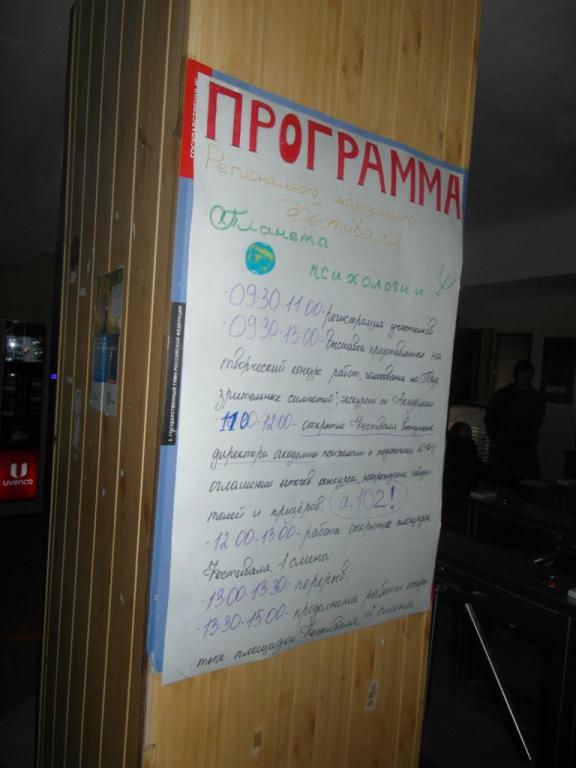 ГОСУДАРСТВЕННЫЕ
ПРОГРАММА
Регионального молодежного
Фестиваля
Планета
психологии Ψ
-09.30-11.00-регистрация участников
-09.30-13.00-Выставка представленных на
творческий конкурс работ, голосование на "Приз
зрительских симпатий", экскурсии по Академии
-11.00-12.00- открытие Фестиваля, вступление
директора академии психологии и педагогики
оглашение итогов конкурса, награждение победи-
телей и призёров. а.102!
-12.00-13.00-работа открытых площадок
Фестиваля 1 смена
-13.00-13.30- перерыв.
-13.30-15.00- продолжение работы откры-
тых площадок Фестиваля 2 смена
3. ГОСУДАРСТВЕННЫЙ ГИМН РОССИЙСКОЙ ФЕДЕРАЦИИ
uvenco